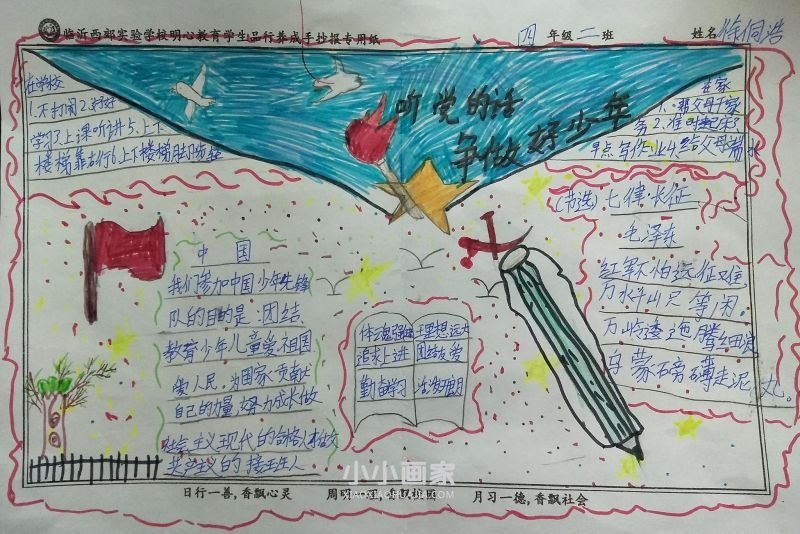 临沂西郊实验学校明心教育学生品行养成手抄报专用纸
四年级二班
姓名徐侗浩
听党的话
争做好少年
在学校
1.不打闹2.好好
学习3.上课听讲5.上下
楼梯靠右行6.上下楼梯脚步轻
在家
1.帮父母干家
务2.准时起床3
早点写作业4.给父母端水
中国
我们参加中国少年先锋
队的目的是:团结
教育少年儿童爱祖国
爱人民,为国家贡献
自己的力量,努力成长做
社会主义现代的合格人才
共产主义的接班人
体魄强健
追求上进
勤奋学习
理想远大
团结友爱
活泼开朗
(节选)七律·长征
毛泽东
红军不怕远征难
万水千山只等闲,
五岭逶迤腾细浪
乌蒙磅礴走泥丸。
小小画家
XIAOXIAOHUAJIA.COM
日行一善,香飘心灵
周明一理,香飘校园
月习一德,香飘社会